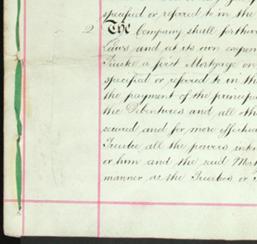 specified or refered to in the
2 The Company shall forthw
Laws and at its own expen
a first Mortgage on
specified or refered to in th
the payment of the principa
the Debentures and all oth
secured and for more effectua
Trustee all the powers inter
or him and the said Mort
manner as the Trustees or T